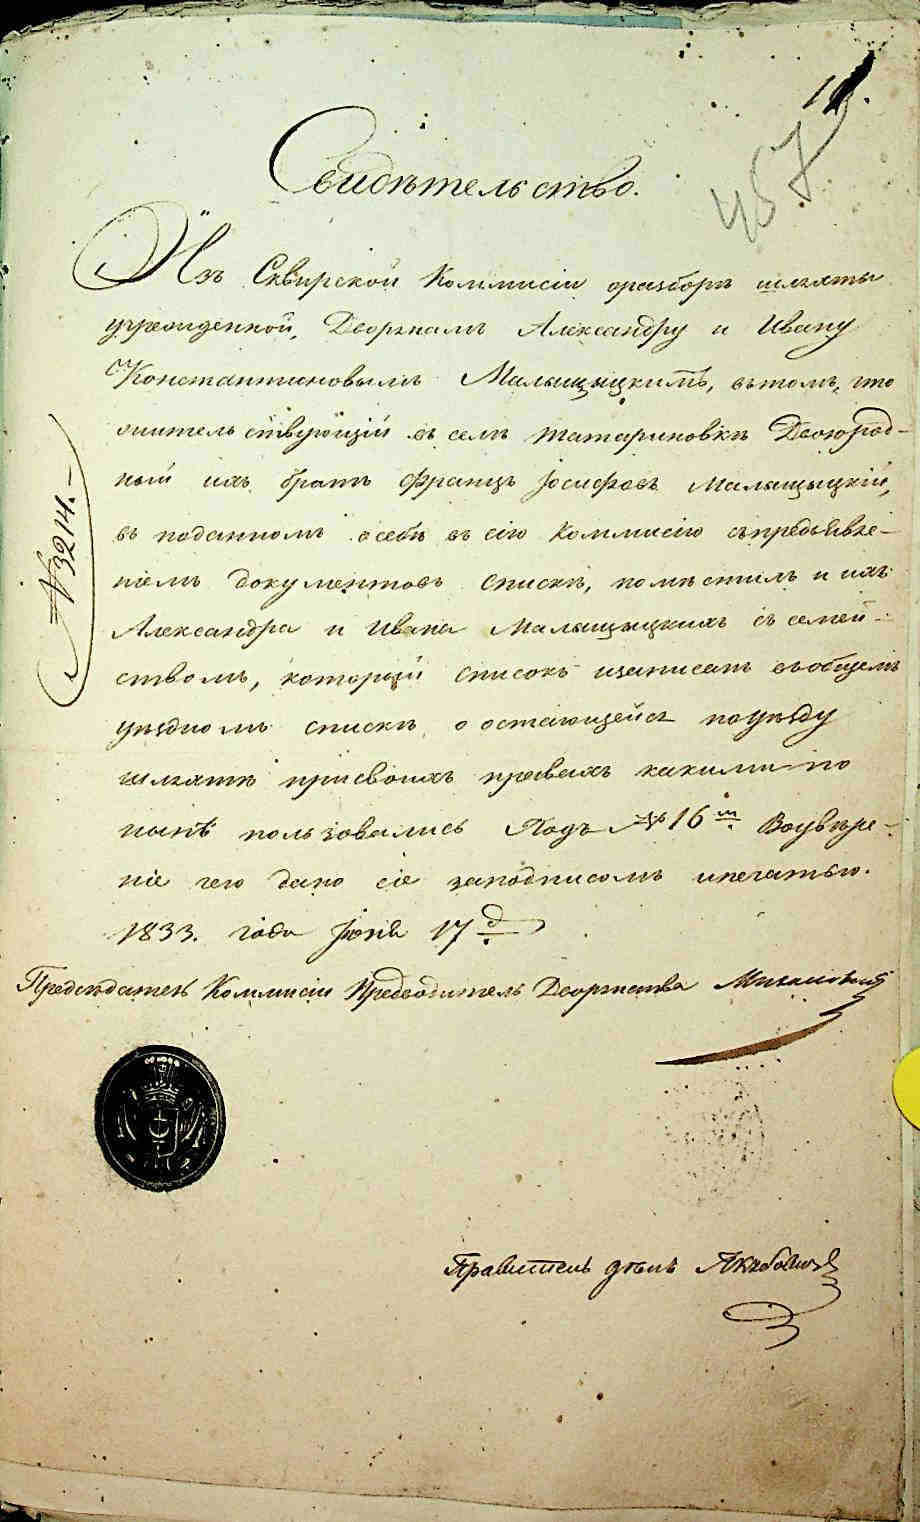 457
Свидѣтельство.
Изъ Сквирской Коммисіи оразборѣ шляхты
учрежденной, Дворянамъ Александру и Ивану
Константиновымъ Малыщыцкимъ, вътомъ, что
жительствующій въ селѣ Татариновкѣ Двоюрод-
ный ихъ братъ Францъ Іосифовъ Малыщыцкій,
въ поданномъ о себѣ въ сію Коммисію съпредъявле-
ніемъ документовъ спискѣ, помѣстилъ и ихъ
Александра и Ивана Малыщыцкихъ съ семей-
ствомъ, который списокъ изаписанъ въобщемъ
уѣздномъ спискѣ о остающейся поуѣзду
шляхтѣ присвоихъ правахъ какими по
нынѣ пользовались Подъ № 16м Воувѣре-
ніе чего дано сіе заподписомъ ипечатью.
1833. года Іюня 17д
№ 3214.
Предсѣдатель Коммисіи Предводитель Дворянства
Правитель дѣлъ